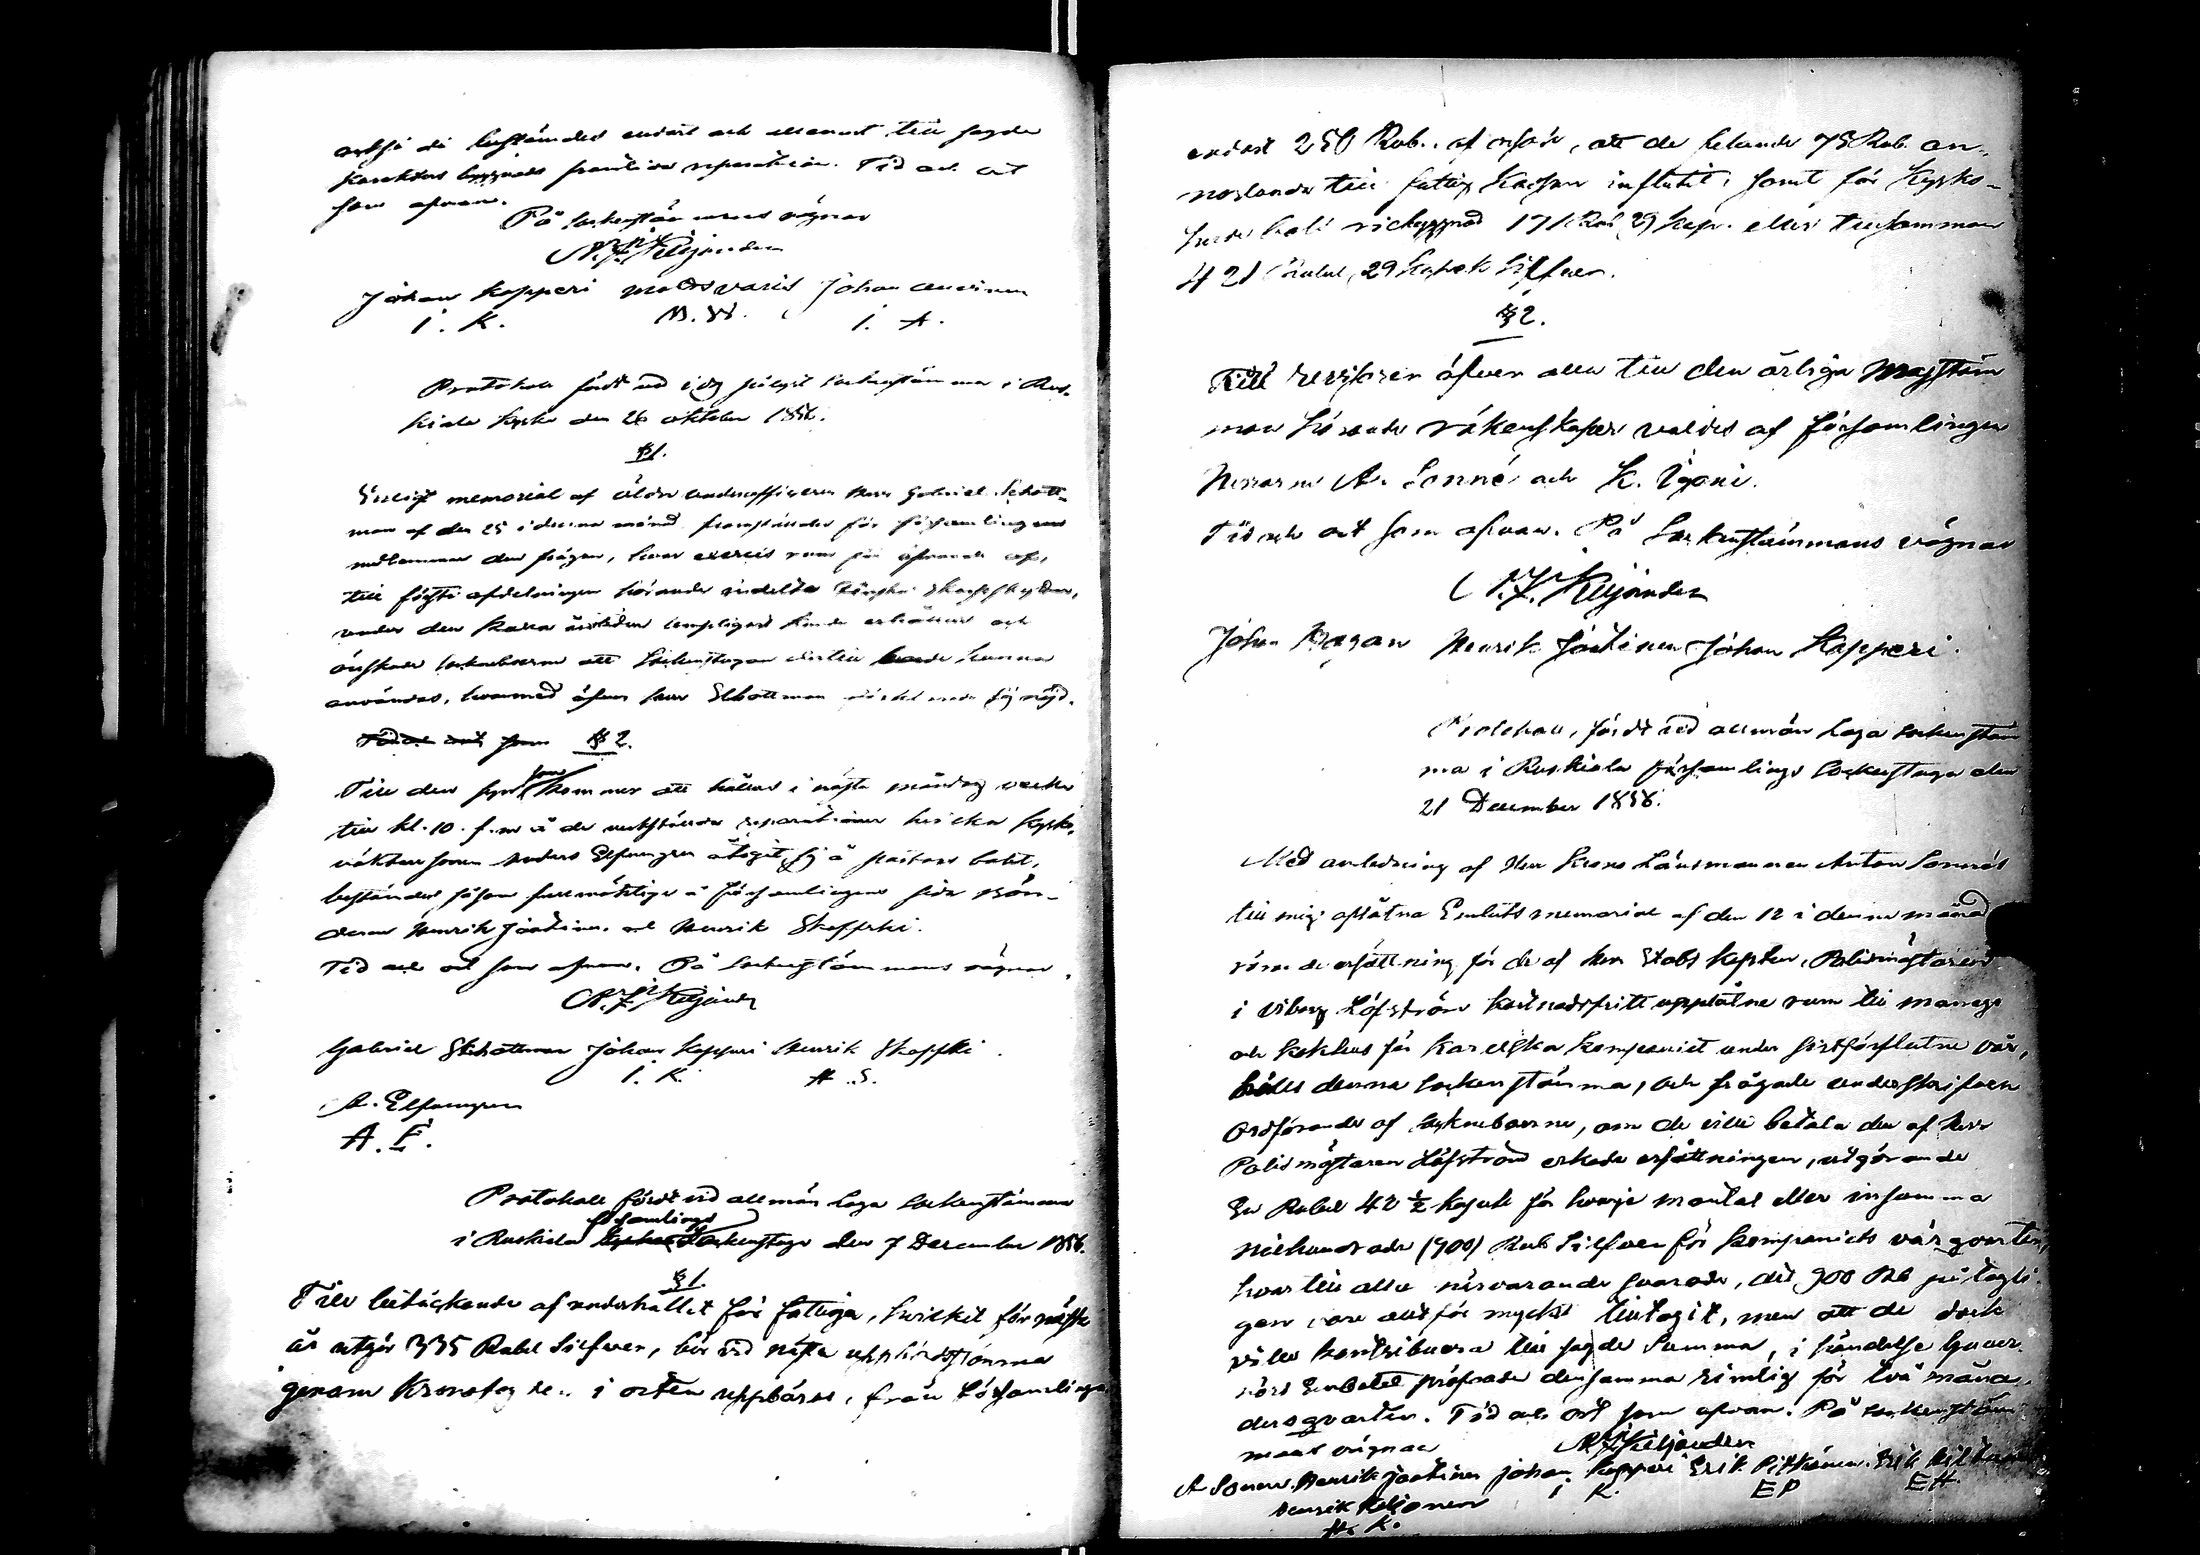 också de bestämdes endast och allenast till sagde
karakters byggnads framtida reparation. Tid och ort
som ofvan.
På sockenstämmans vägnar
N. F. Kiljander
Johan Kapperi Matts Johan
I. K. M. W. I. A.
Protokoll fördt vid i dag hållit sockenstämma i Rus-
kiala kyrka den 26 oktober 1856.
§ 1.
Enligt memorial af äldre underofficeren Herr Gabriel Schott-
man af den 25 i denna månad framställdes för församlingens
medlemmar den frågan, hvar exercis rum för
till första afdelningen hörande indelte Finska Skarpskyttar,
under den kalla årstiden lämpligast kunde erhållas och
önskade sockneboerne att Sockenstugan dertill kunde
användas, hvarmed äfven herr Schottman sig nöjd.
Tid och ort som § 2.
Till den syn som kommer att hållas i nästa måndag vecka
till kl. 10 f.m. å de verkställda reparationer hvilka kyrko-
väktaren Anders Elfvengren åtagit sig å pastors bolet,
bestämdes såsom fullmäktige å församlingens sida Bön-
derne Henrik Jäntinen och Henrik Skaffski.
Tid och ort som ofvan. På sockenstämmans vägnar
N. F. Kiljander
Gabriel Schottman Johan Kapperi Henrik Skaffki
I. K. H. S.
A. Elfvengren
A. E.
Protokoll fördt vid allmän laga sockenstämma
församlings
i Ruskiala Sockenstuga den 7 December 1856.
§ 1.
Till betäckande af underhållet för fattiga, hvilket för nästa
år utgör 335 Rubel Silfver, bör vid nästa uppbördstämma
genom i orten uppbäras, från Församlingen
endast 250 Rub. af orsak, att de felande 75 Rub. an-
norlunda till fattig Kassan influtit, samt för Kyrko-
herde bols nybyggnad 171 Rub 29 kop. eller tillsamman
421 Rubel, 29 Kopek Silfver.
§ 2.
Till revisorer öfver alla till den årliga Majstäm
man hörande räkenskaper valdes af församlingen
Herrarne A. Sonné och K. Ügani.
Tid och ort som ofvan. På Sockenstämmans vägnar
N. F. Kiljander
Johan Henrik Jäntinen Johan Kapperi.
Protokoll, fördt vid allmän laga sockenstäm
ma i Ruskiala församlings Sockenstuga den
21 December 1856.
Med anledning af Herr Krono Länsmannen Anton Sonnés
till mig aflåtna Embets memorial af den 12 i denna månad
rörande ersättning för de af herr Stabs Kapten, Polismästaren
i Viborg Löfström kostnadsfritt upplåtne rum till manege
och kokhus för Karelska Kompaniet under sistförflutne vår,
hölls denna sockenstämma, och frågade underskrifven
Ordförande af sockneboerne, om de ville betala den af herr
Polismästaren Löfström erkade ersättningen, utgörande
En Rubel 42 ½ kopek för hvarje mantal eller in summa
niehundrade (900) Rub Silfver för kompaniets vår qvarter,
hvartill alla närvarande svarade, att 900 Rub
vore allt för mycket tilltagit, men att de dock
ville kontribuera till sagde Summa, i händelse Guver-
nörs Embetet pröfvade densamma rimlig för två måna-
ders qvarter. Tid och ort som ofvan. På sockenstäm-
mans vägnar
N. F. Kiljander
A Sonné. Henrik Jäntinen Johan Kapperi Erik Pitkänen. Erik
I K. EP EH
Henrik Kiljonen
H. K.